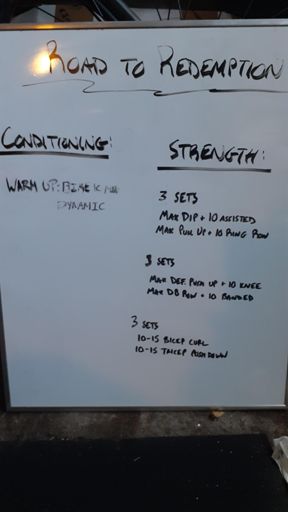 ROAD TO REDEMPTION
CONDITIONING:
WARM UP: BIKE
DYNAMIC
STRENGTH:
3 SETS
MAX DIP + 10 ASSISTED
MAX PULL UP + 10 RING ROW
3 SETS
MAX DEF. PUSH UP + 10 KNEE
MAX DB ROW + 10 BANDED
3 SETS
10-15 BICEP CURL
10-15 TRICEP PUSHDOWN